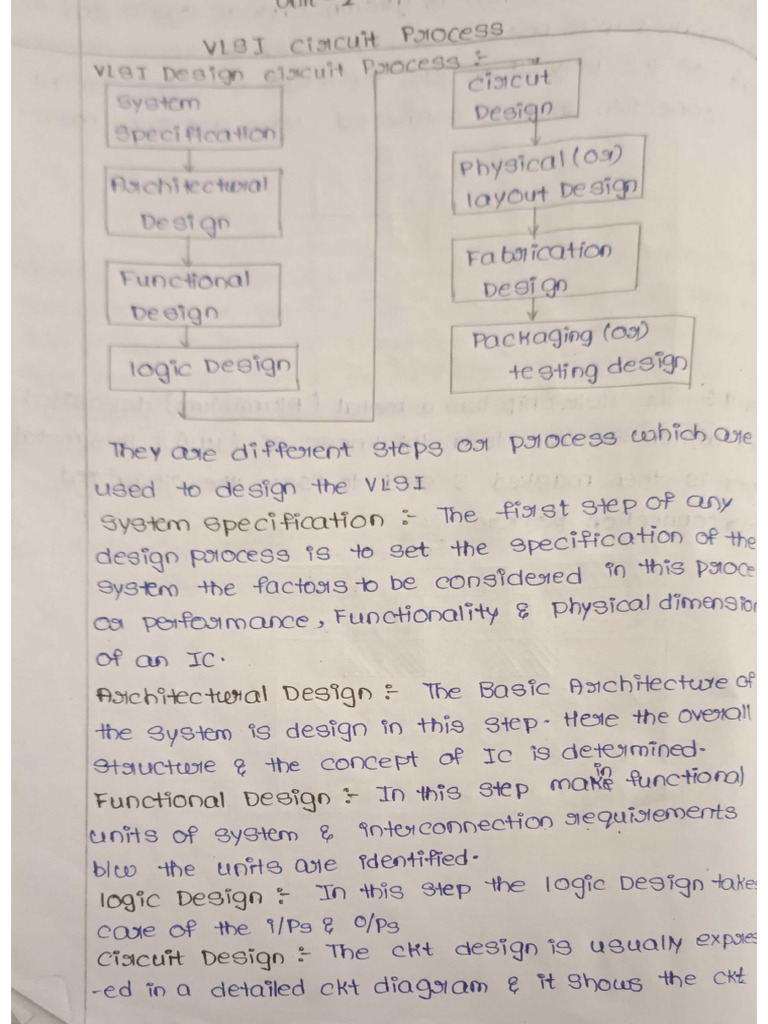 Unit - 2
VLSI Circuit Process
VLSI Design circuit Process :-
System
Specification
Architectural
Design
Functional
Design
logic Design
Circut
Design
Physical (or)
layout Design
Fabrication
Design
Packaging (or)
testing design
They are different steps or process which are
used to design the VLSI
System specification :- The first step of any
design process is to set the specification of the
system the factors to be considered in this proce
or performance, Functionality & physical dimension
of an IC.
Architectural Design :- The Basic Architecture of
the system is design in this step. Here the overall
structure & the concept of IC is determined.
Functional Design :- In this step main functional
units of system & interconnection requirements
b/w the units are identified.
logic Design :- In this step the logic Design take
care of the i/Ps & o/Ps
Circuit Design :- The ckt design is usually expres
-ed in a detailed ckt diagram & it shows the ckt